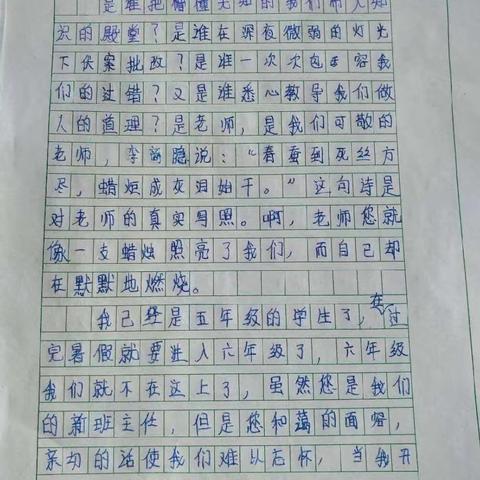 是谁把懵懂无知的我们带入知
识的殿堂？是谁在深夜微弱的灯光
下伏案批改？是谁一次次包容我
们的过错？又是谁悉心教导我们做
人的道理？是老师，是我们可敬的
老师，李商隐说：“春蚕到死丝方
尽，蜡炬成灰泪始干。”这句诗是
对老师的真实写照。啊，老师您就
像一支蜡烛照亮了我们，而自己却
在默默地燃烧。
我已经是五年级的学生了，在过
完暑假就要进入六年级了，六年级
我们就不在这上了，虽然您是我们
的新班主任，但是您和蔼的面容，
亲切的话使我们难以忘怀，当我开